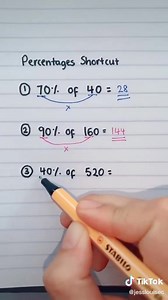 Percentages Shortcut
① 70% of 40 = 28
x
② 90% of 160 = 144
x
③ 40% of 520 =
STABILO
TikTok